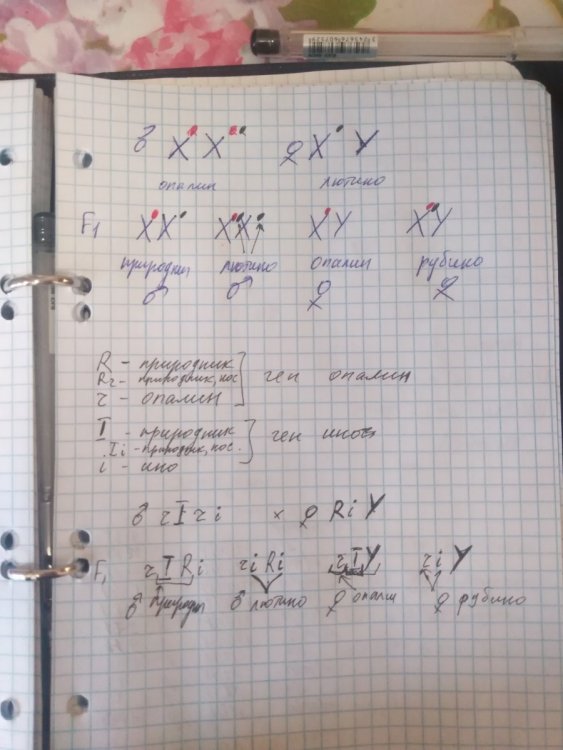 ♂ X X ♀ X Y
опалин лютино
F1 XX XX XY XY
природник лютино опалин рубино
♂ ♂ ♀ ♀
R - природник
Rr - природник, нос
ген опалин
r - опалин
I - природник
Ii - природник, нос.
ген ино
i - ино
♂ rI ri × ♀ Ri Y
F1 rI Ri ri Ri rI Y ri Y
♂ ♂ лютино ♀ опалин ♀ рубино